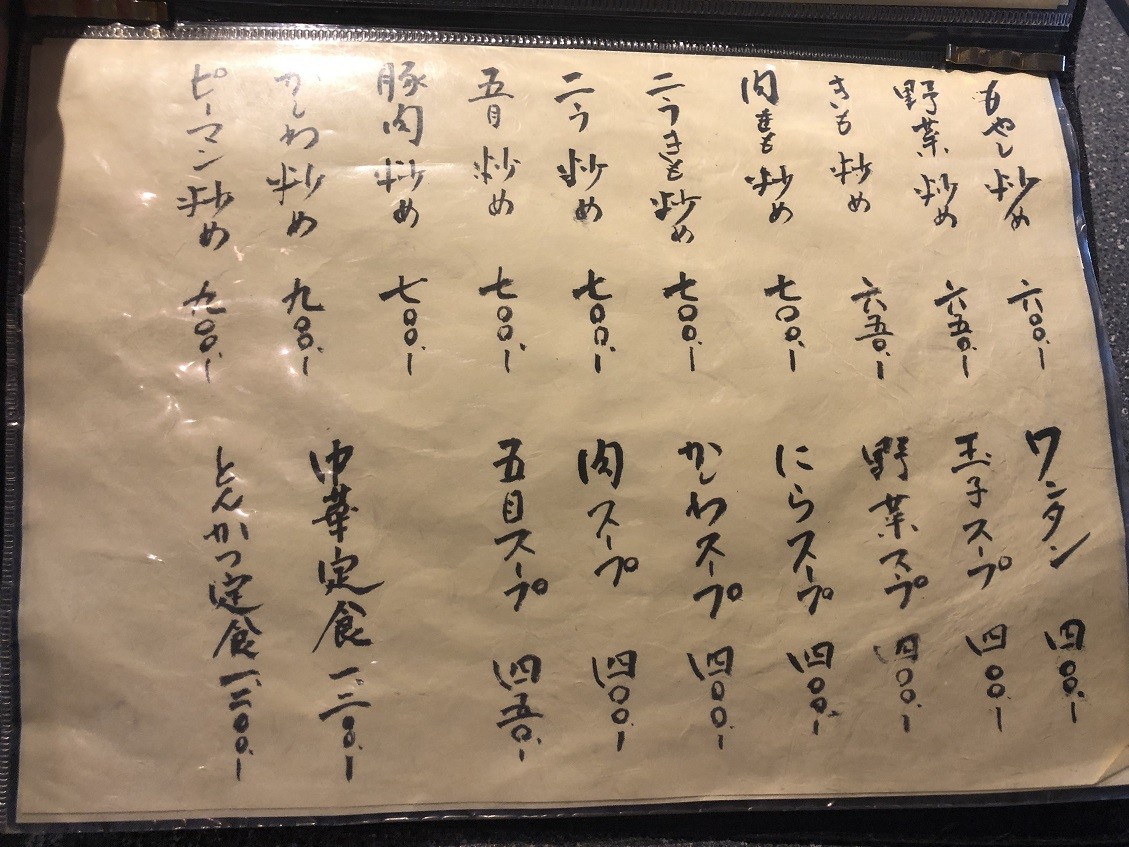 もやし炒め 六〇〇.ー
野菜炒め 六五〇.ー
きも炒め 六五〇.ー
肉きも炒め 七〇〇.ー
ニラきも炒め 七〇〇.ー
ニラ炒め 七〇〇.ー
五目炒め 七〇〇.ー
豚肉炒め 七〇〇.ー
かしわ炒め 九〇〇.ー
ピーマン炒め 九〇〇.ー
ワンタン 四〇〇.ー
玉子スープ 四〇〇.ー
野菜スープ 四〇〇.ー
にらスープ 四〇〇.ー
かしわスープ 四〇〇.ー
肉スープ 四〇〇.ー
五目スープ 四五〇.ー
中華定食
とんかつ定食